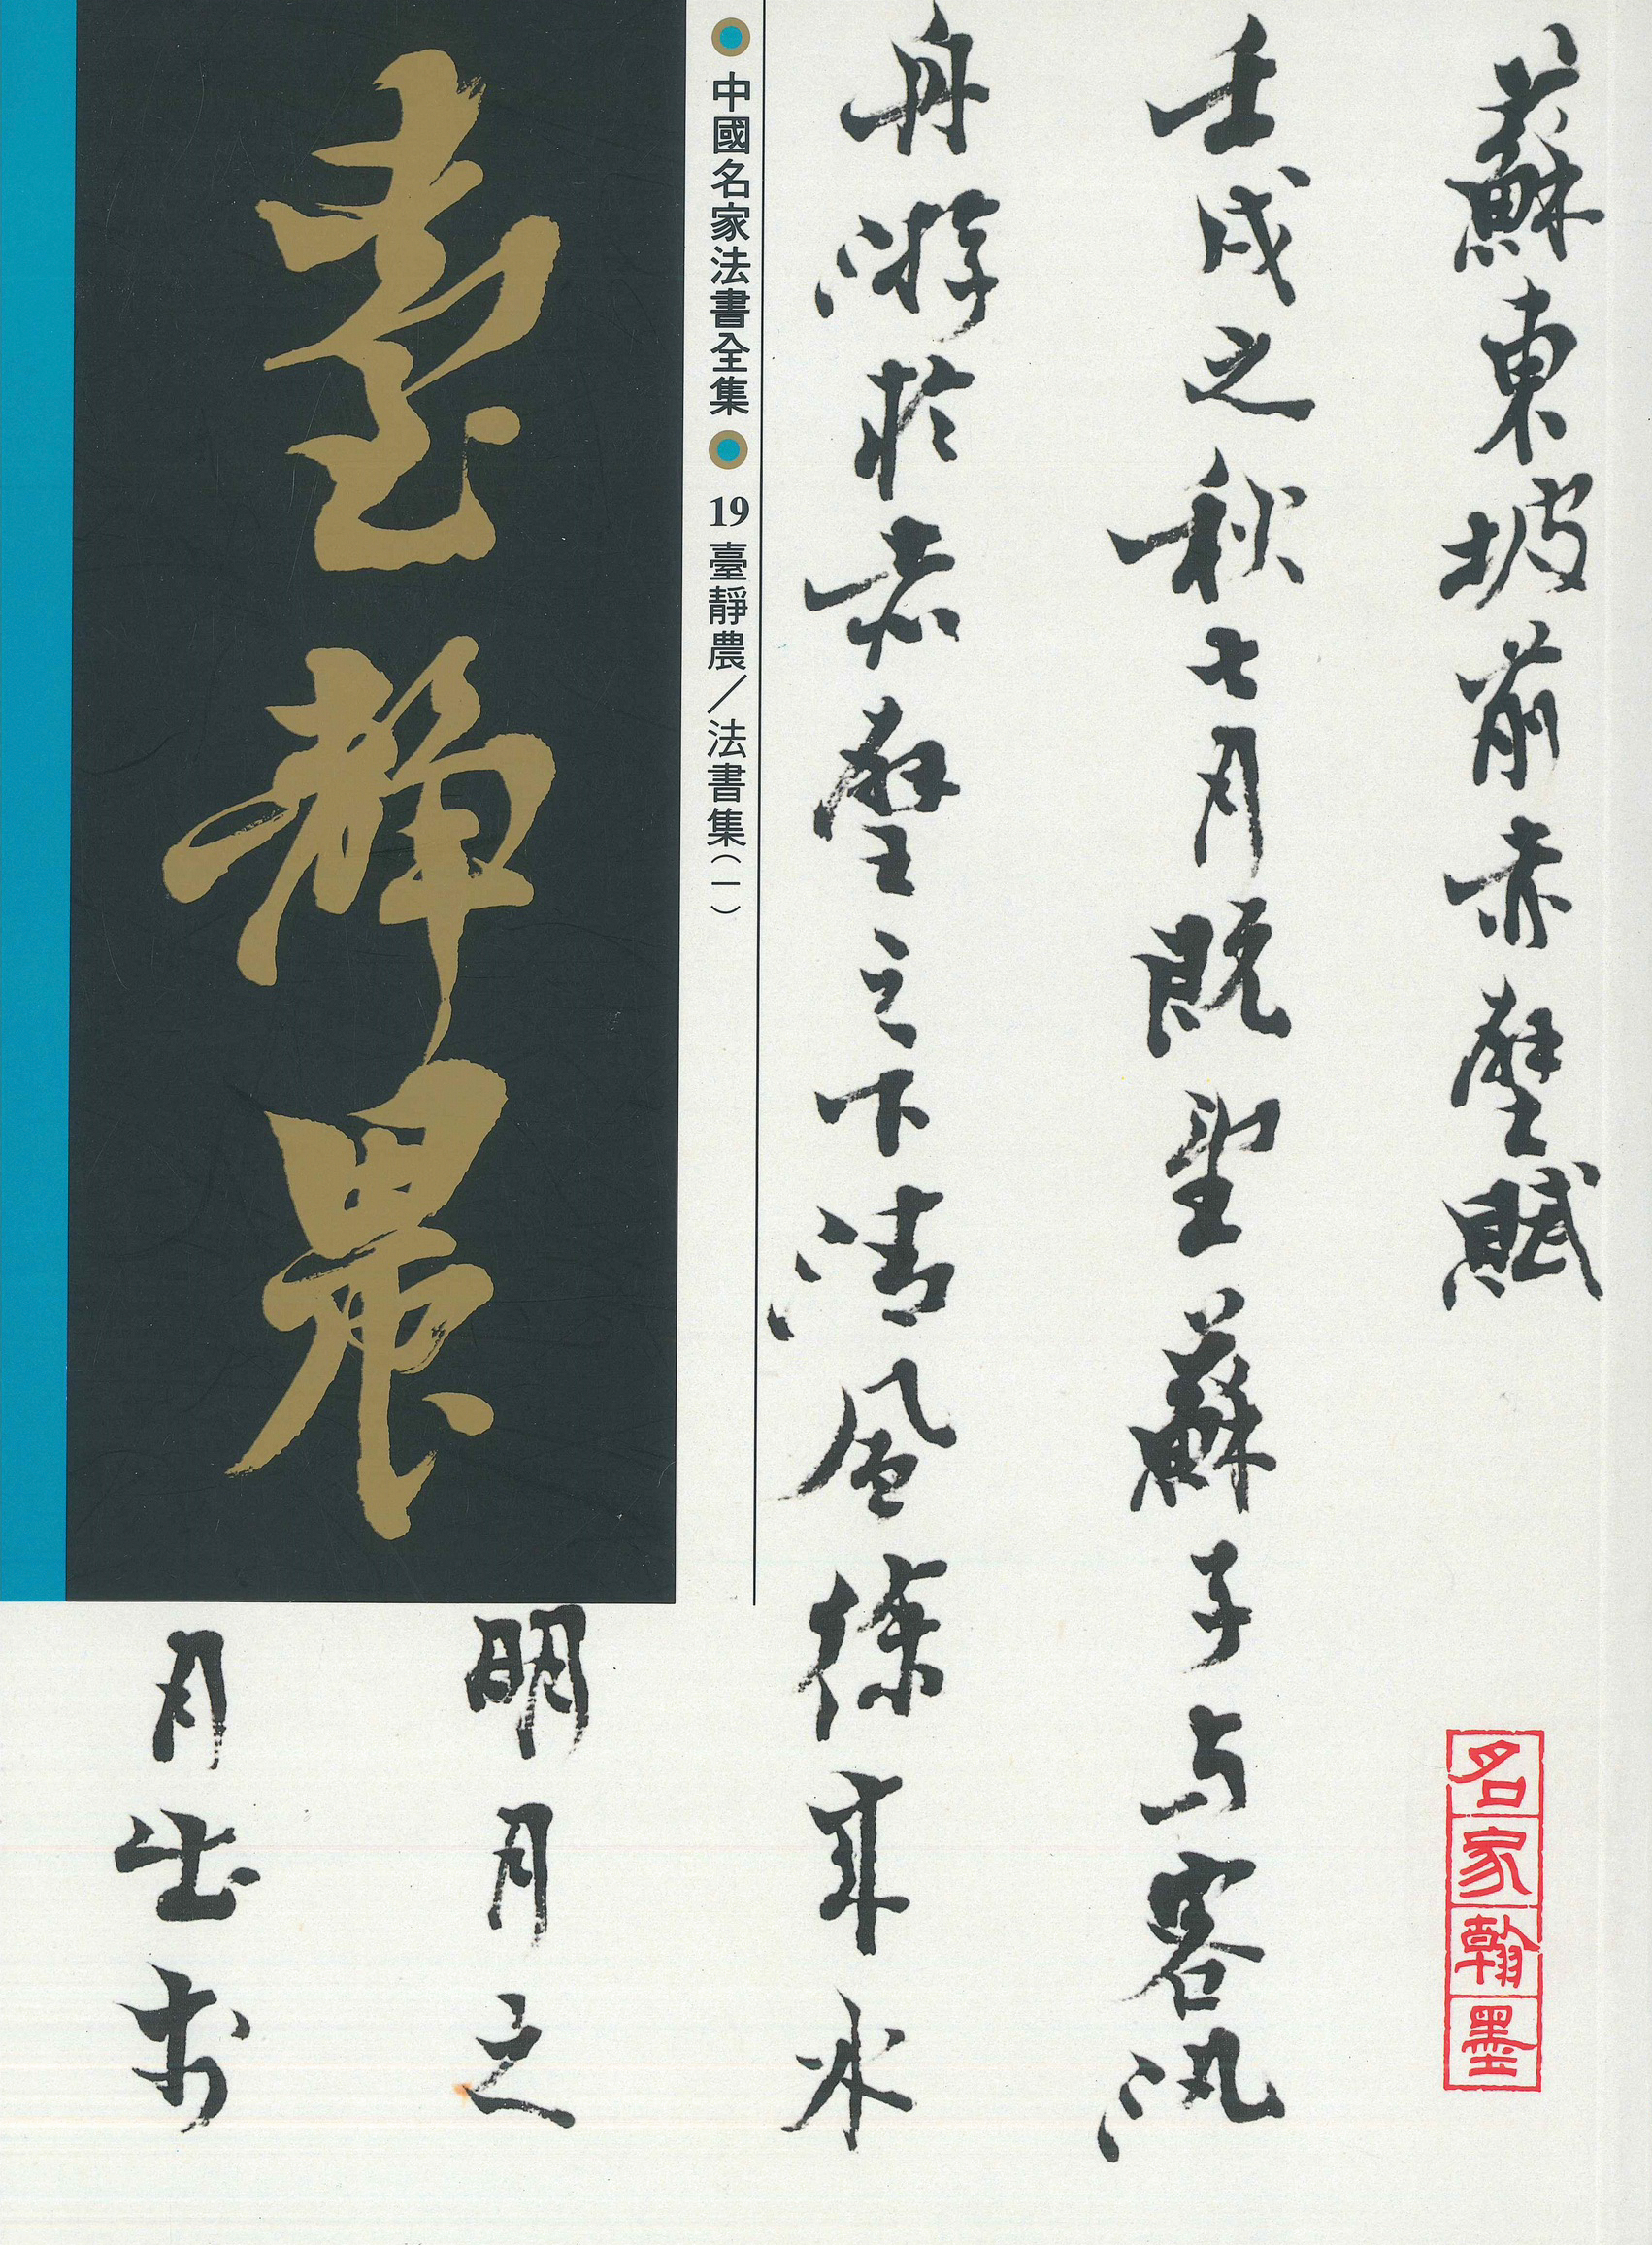 蘇東坡前赤壁賦
名家翰墨
壬戌之秋七月既望蘇子与客汎
舟游於赤壁之下清風徐來水
中國名家法書全集 19 臺靜農／法書集(一)
臺靜農
明月之
月出於